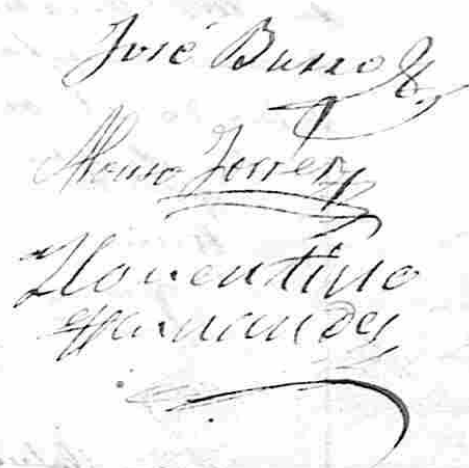 José Busso
Alonso Torrez
Florentino
Hernandes